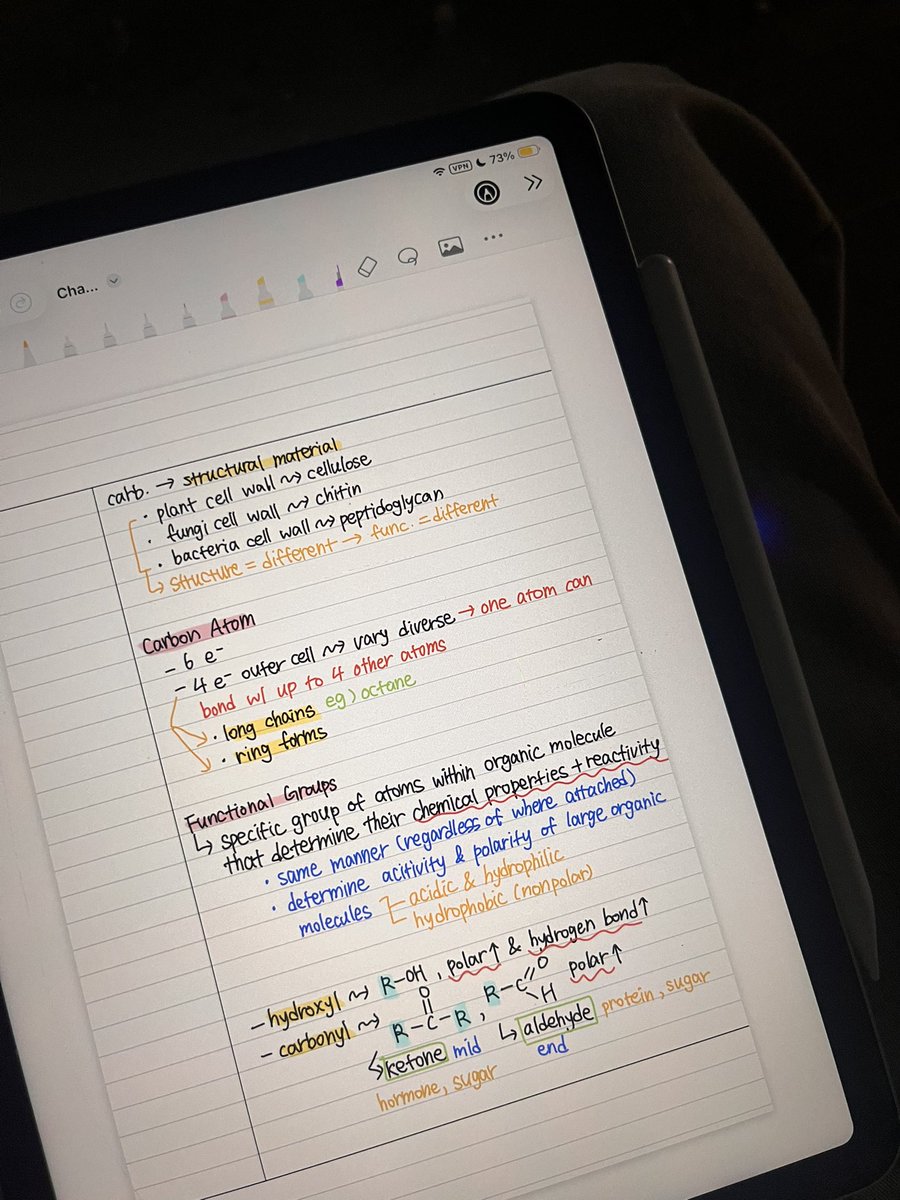 VPN 73%
Cha...
carb. → structural material
· plant cell wall ⇝ cellulose
· fungi cell wall ⇝ chitin
· bacteria cell wall ⇝ peptidoglycan
↳ structure = different → func. = different
Carbon Atom
- 6 e⁻
- 4 e⁻ outer cell ⇝ vary diverse → one atom can
bond w/ up to 4 other atoms
· long chains eg) octane
· ring forms
Functional Groups
↳ specific group of atoms within organic molecule
that determine their chemical properties + reactivity
· same manner (regardless of where attached)
· determine acitivity & polarity of large organic
molecules acidic & hydrophilic
hydrophobic (nonpolar)
- hydroxyl ⇝ R-OH, polar↑ & hydrogen bond↑
O O
- carbonyl ⇝ R-C-R, R-C polar↑
H
↳ ketone mid ↳ aldehyde protein, sugar
end
hormone, sugar